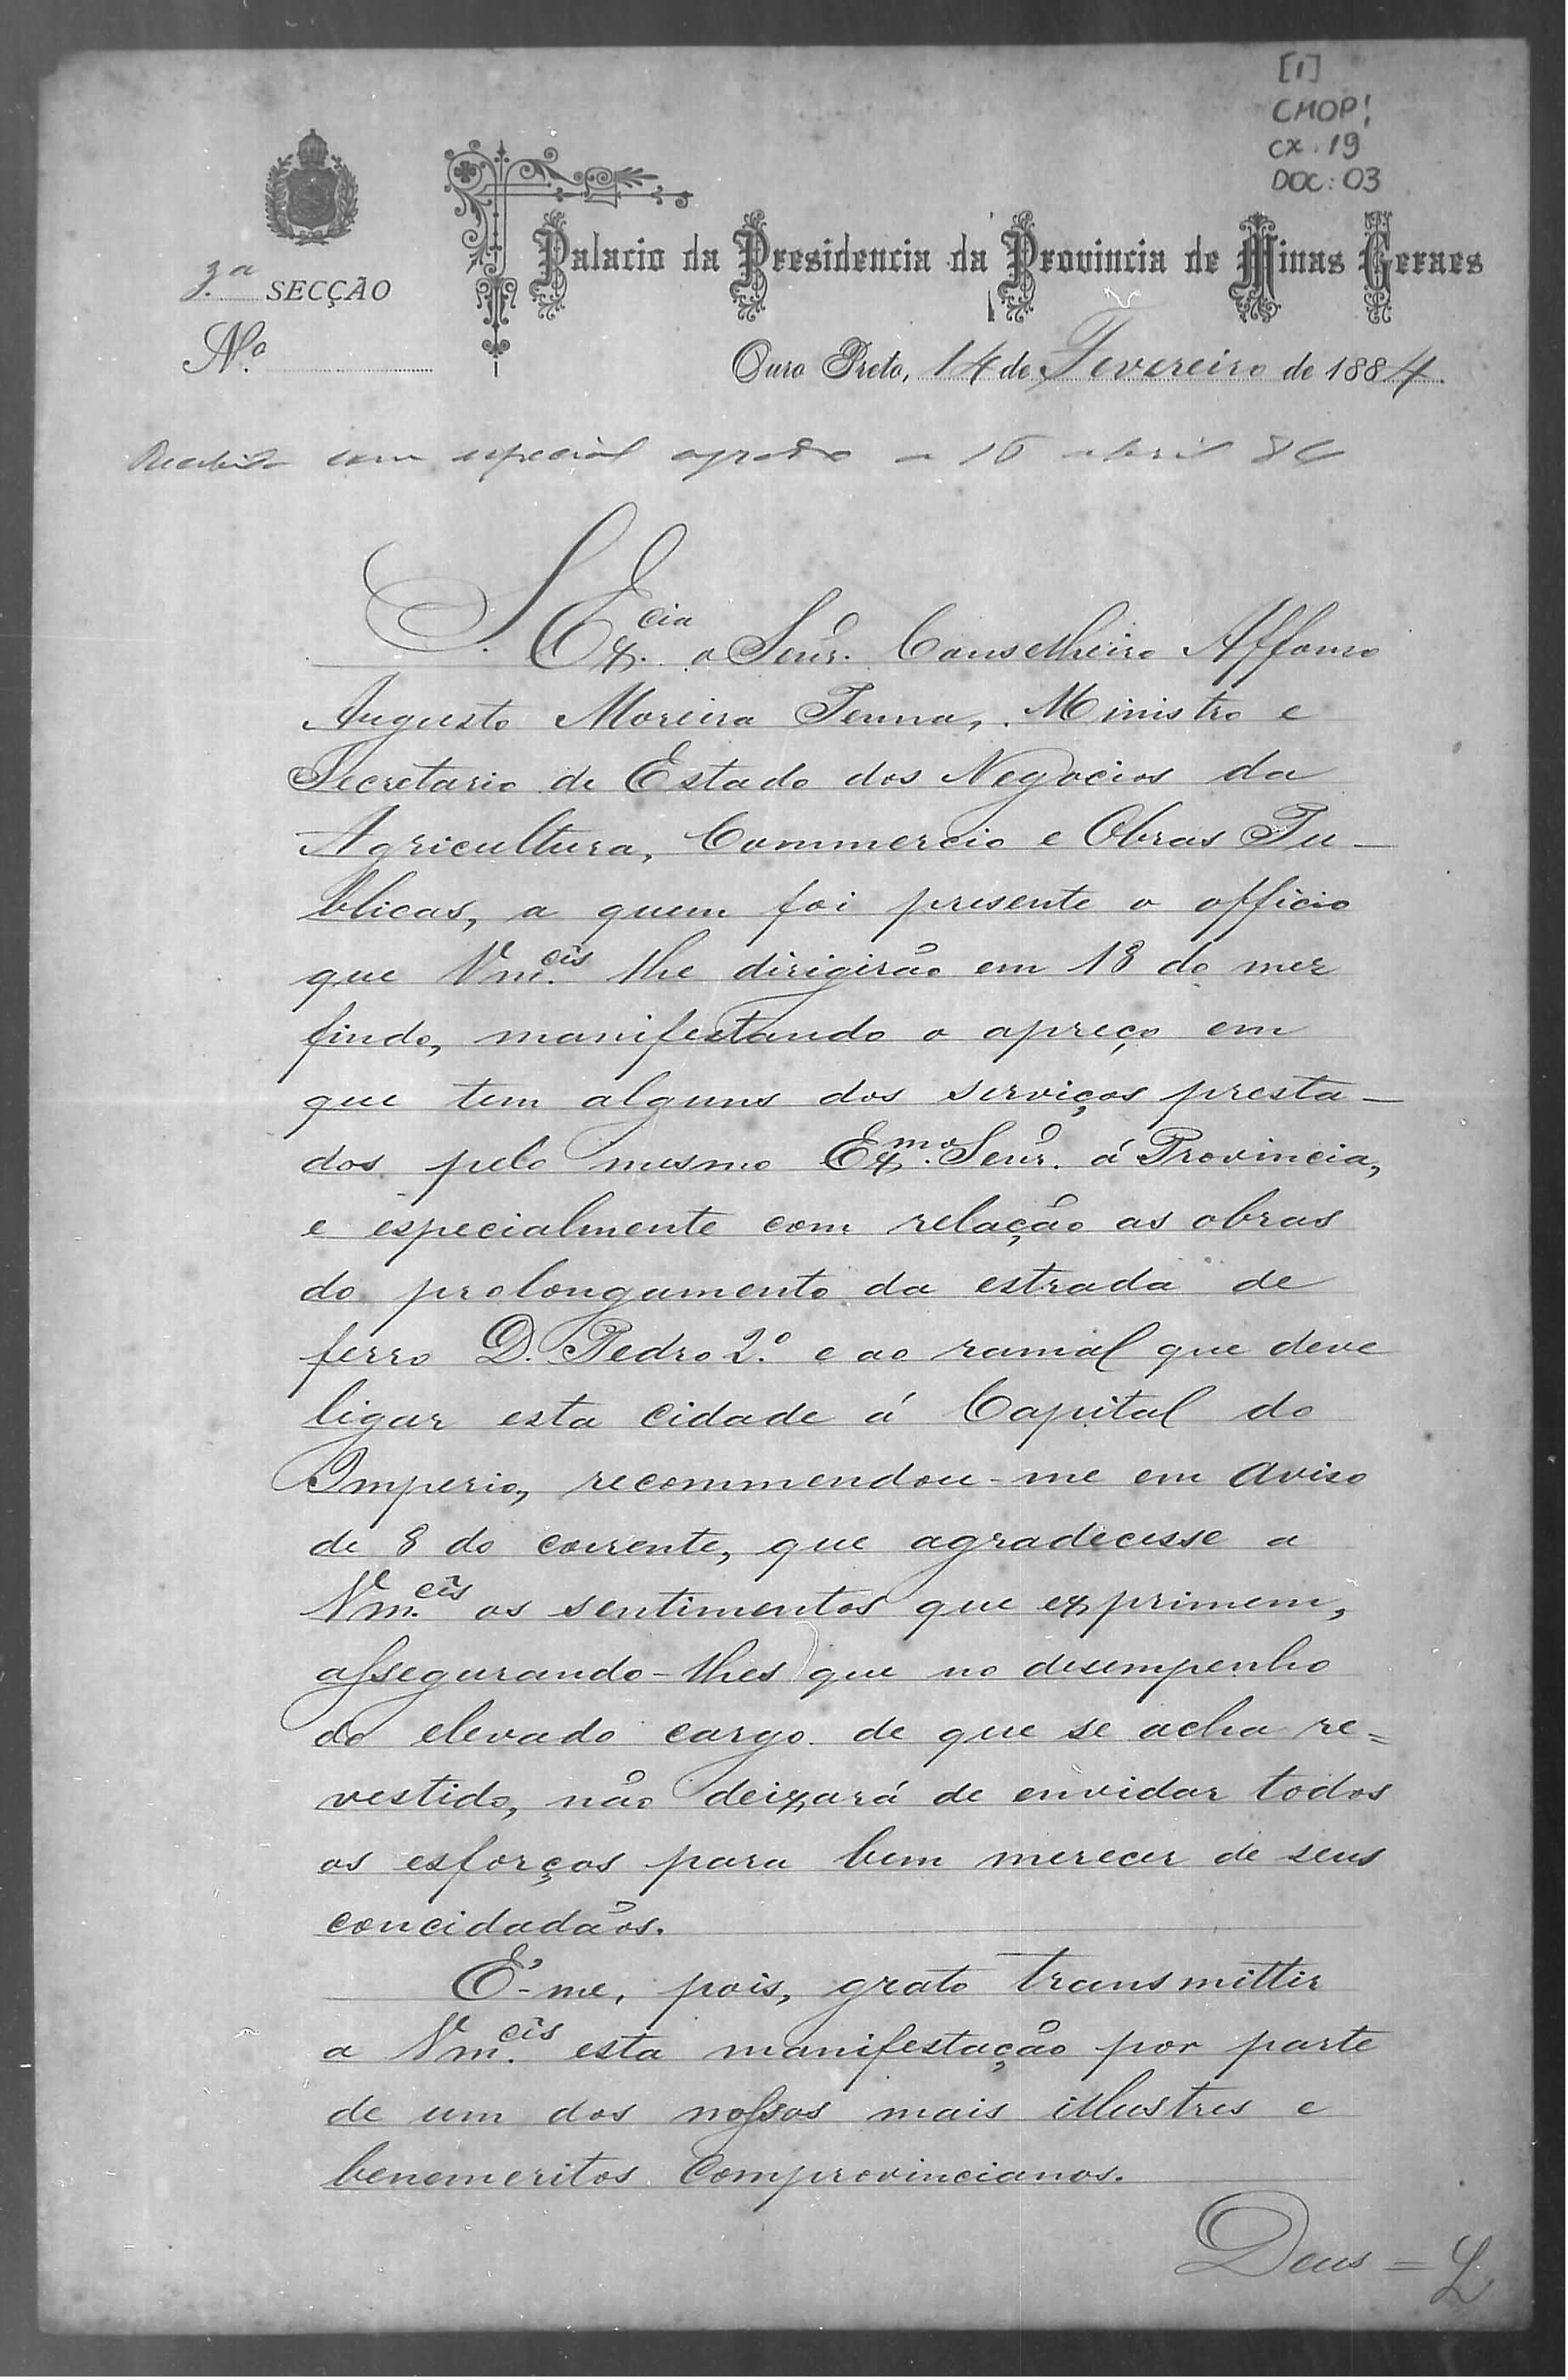 [1]
CMOP!
CX. 19
DOC: 03
Palacio da Presidencia da Provincia de Minas Geraes
3.ª SECÇÃO
N.º
Ouro Preto, 14 de Fevereiro de 1884.
com especial agrado a 16 abril 84
S. Ex.cia o Senr. Conselheiro Affonso
Augusto Moreira Penna, Ministro e
Secretario de Estado dos Negocios da
Agricultura, Commercio e Obras Pu-
blicas, a quem foi presente o officio
que Vm.cês lhe dirigirão em 18 do mez
findo, manifestando o apreço em
que tem alguns dos serviços presta-
dos pelo mesmo Ex.mo Senr. á Provincia,
e especialmente com relação as obras
do prolongamento da estrada de
ferro D. Pedro 2.º e ao ramal que deve
ligar esta cidade á Capital do
Imperio, recommendou-me em aviso
de 8 do corrente, que agradecesse a
Vm.cês os sentimentos que exprimem,
assegurando-lhes que no desempenho
do elevado cargo de que se acha re=
vestido, não deixará de envidar todos
os esforços para bem merecer de seus
concidadãos.
É-me, pois, grato transmittir
a Vm.cês esta manifestação por parte
de um dos nossos mais illustres e
benemeritos Comprovincianos.
Deus =